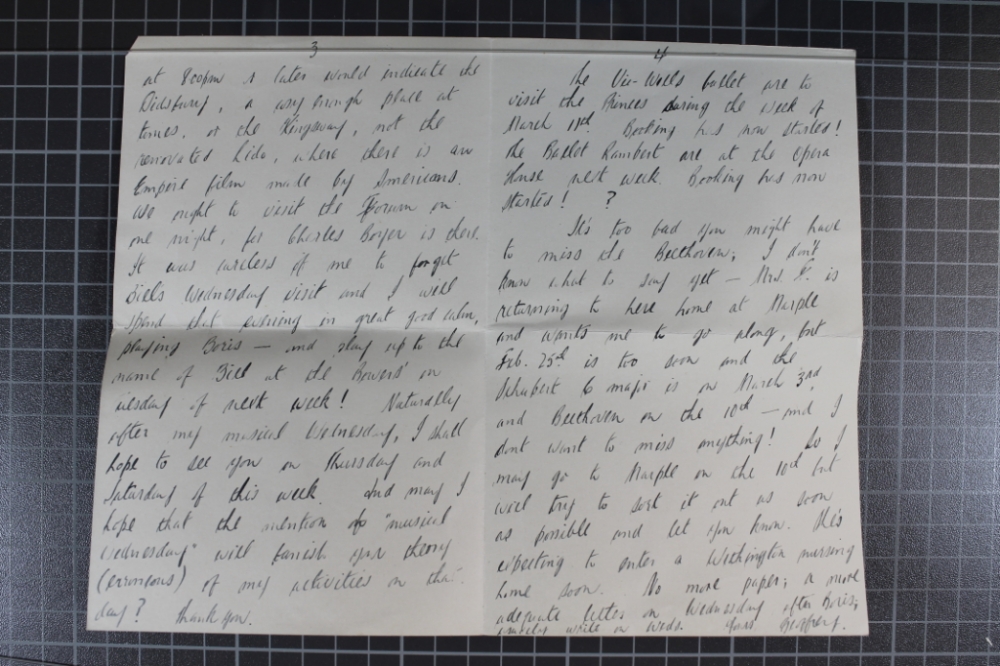 3
at 8.00pm & later would indicate the
Didsbury, a cosy enough place at
times, or the Kingsway, not the
renovated Lido, where there is an
Empire film made by Americans.
We ought to visit the Forum on
one night, for Charles Boyer is there.
It was careless of me to forget
Bill's Wednesday visit and I will
spend that evening in great good calm,
playing Boris — and play up to the
name of Bill at the Bowers' on
Tuesday of next week! Naturally
after my musical Wednesday, I shall
hope to see you on Thursday and
Saturday of this week. And may I
hope that the mention of "musical
Wednesday" will banish your theory
(erroneous) of my activities on that
day? Thank you.
4
The Vic-Wells ballet are to
visit the Princes during the week of
March 11th. Booking has now started!
The Ballet Rambert are at the Opera
House next week. Booking has now
started! ?
It's too bad you might have
to miss the Beethoven; I don't
know what to say yet — Mrs. is
returning to here home at Marple
and wants me to go along, but
Feb. 25th is too soon and the
Schubert C major is on March 3rd
and Beethoven on the 10th — and I
dont want to miss anything! So I
may go to Marple on the 10th but
will try to sort it out as soon
as possible and let you know. She's
expecting to enter a Withington nursing
home soon. No more paper; a more
adequate letter on Wednesday after Boris;
write on Weds. Yours Geoffrey.